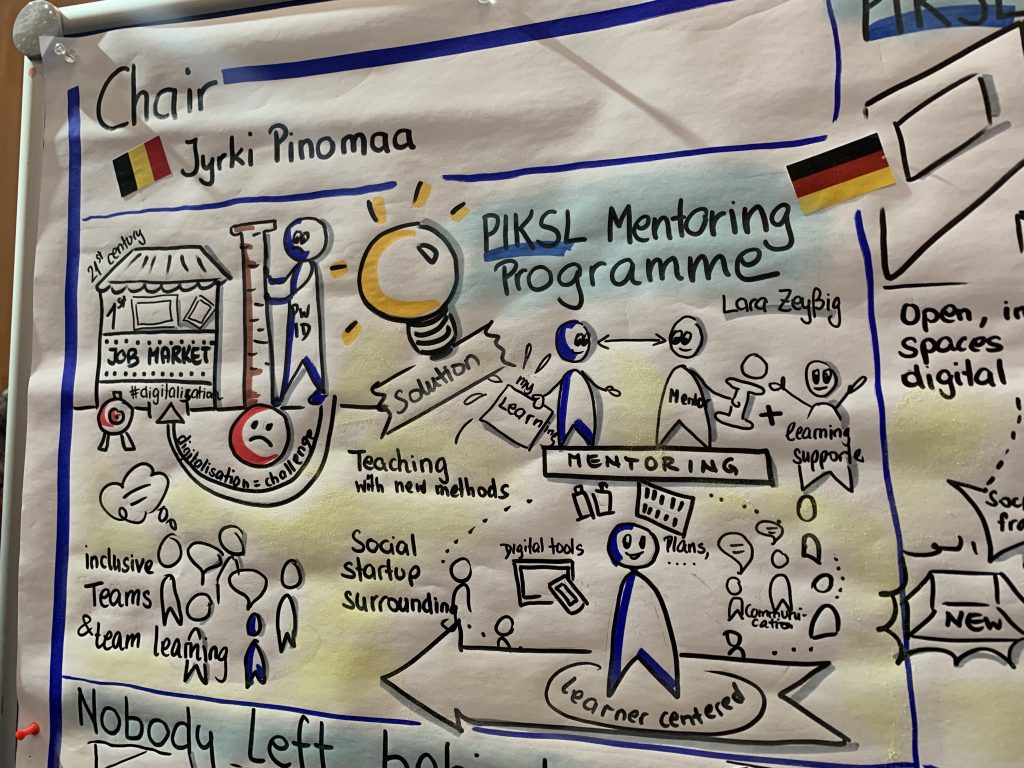 Chair
Jyrki Pinomaa
PIKSL Mentoring
Programme
Lara Zeyßig
21st century
1st
JOB MARKET
#digitalisation
PW
ID
digitalisation = challenge
Solution
my
Learning
Mentor
+
learning
supporter
MENTORING
Teaching
with new methods
Social
startup
surrounding
Digital tools
Plans,
Communi-
cation
Learner centered
inclusive
Teams
& team learning
Nobody Left
PIKSL
Open,
spaces
digital
NEW